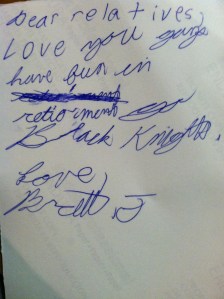 Dear relatives,
Love you guys
have fun in
retirement
Black Knights.
Love,
Brett J